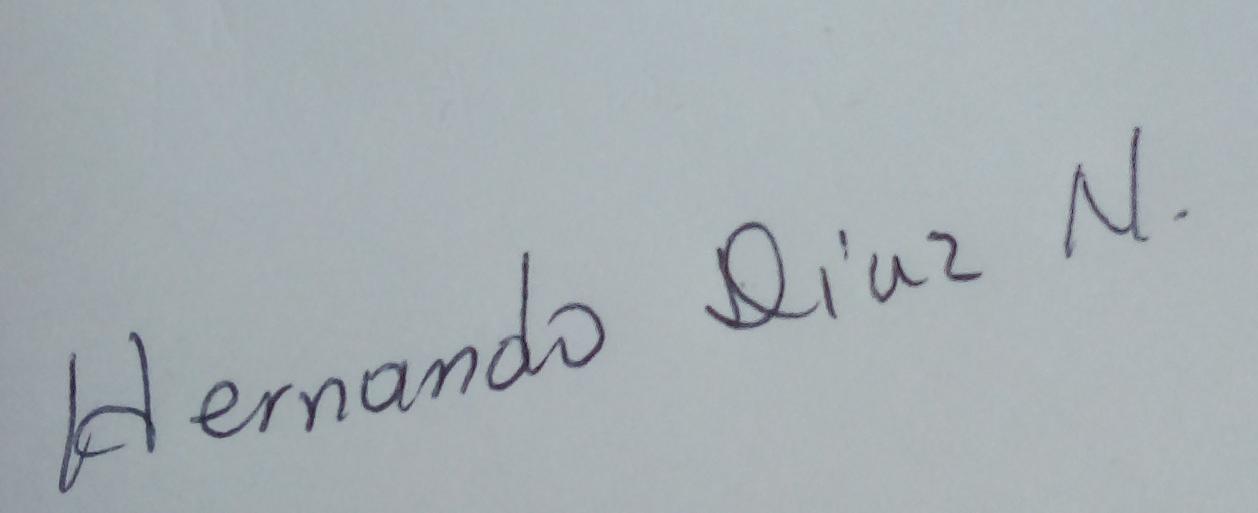 Hernando Diaz N.